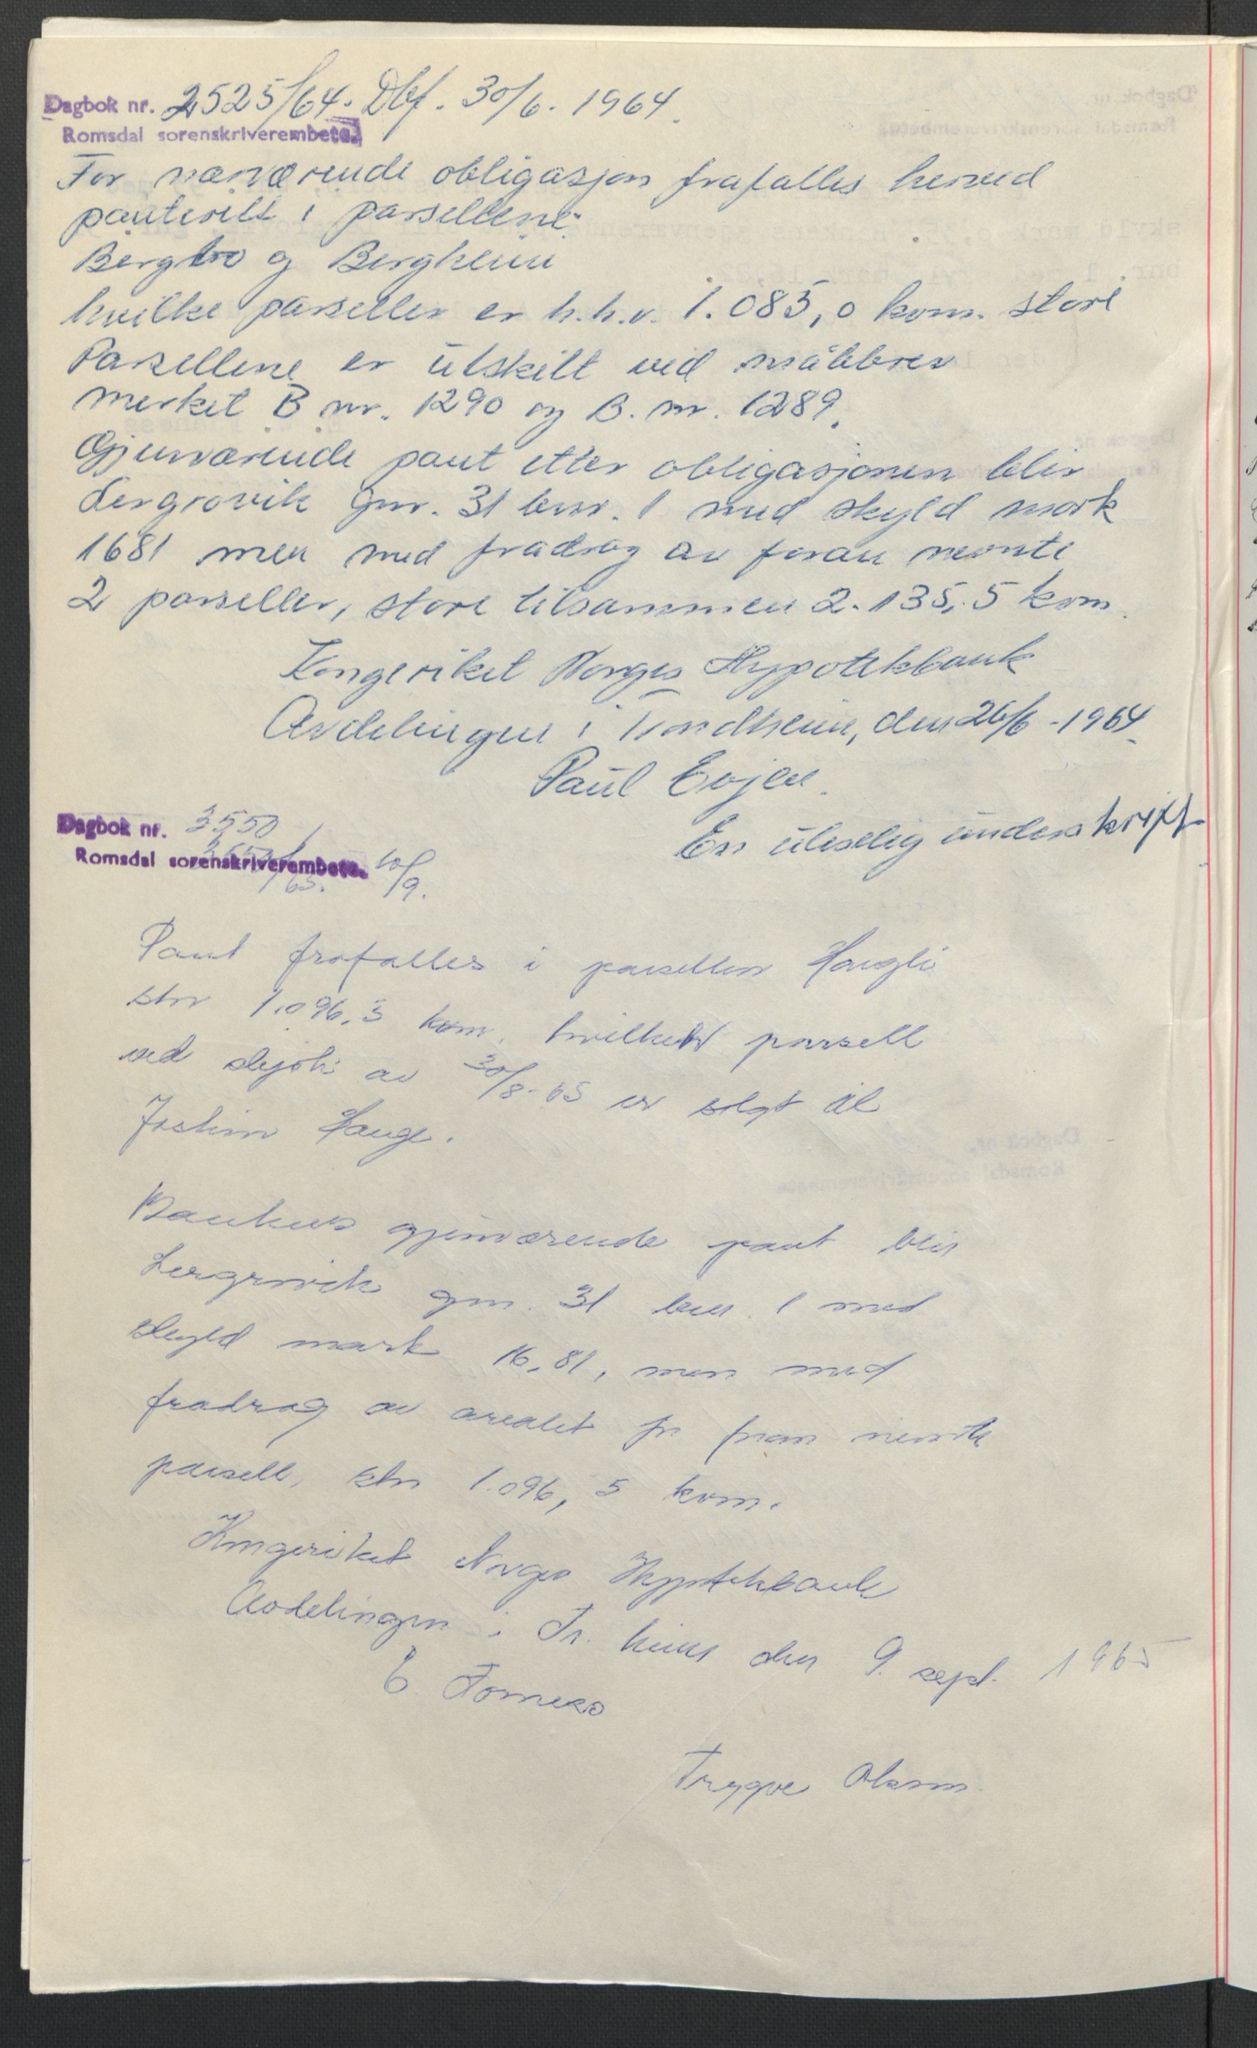 Dagbok nr. 2525/64. Dbf. 30/6. 1964.
Romsdal sorenskriverembete.
For nærværende obligasjon frafalles herved
panterett i parsellene:
Bergbo og Bergheim
hvilke parseller er h.h.v. 1.085,0 kvm. store
Parsellene er utskilt ved målebrev
merket B nr. 1290 og B. nr. 1289.
Gjenværende pant etter obligasjonen blir
Lergrovik gnr. 31 bnr. 1 med skyld mark
1681 men med fradrag av foran nevnte
2 parseller, store tilsammen 2.135,5 kvm.
Kongeriket Norges Hypotekbank
Avdelingen i Trondheim, den 26/6 - 1964.
Paul Evjen.
En uleselig underskrift
Dagbok nr. 3550
Romsdal sorenskriverembete. 10/9.
65.
Pant frafalles i parsellen Haugli
stor 1.096,3 kvm, hvilket parsell
ved skjøte av 30/8-65 er solgt til
Jostein Hauge.
Bankens gjenværende pant blir
Lergrovik gnr. 31 bnr. 1 med
skyld mark 16,81, men med
fradrag av arealet for foran nevnte
parsell, stor 1.096,5 kvm.
Kongeriket Norges Hypotekbank
Avdelingen i Tr.heim den 9. sept. 1965
Trygve Olsen.